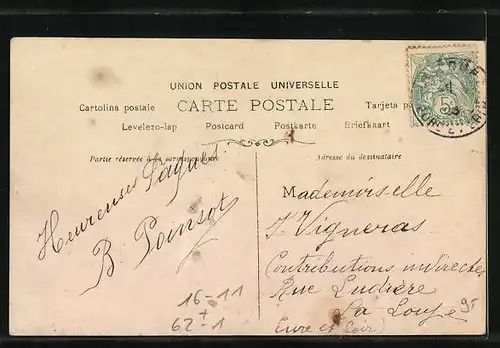 UNION POSTALE UNIVERSELLE
Cartolina postale CARTE POSTALE Tarjeta
Levelezo-lap Postcard Postkarte Briefkaart
Partie réservée à la correspondance
Adresse du destinataire
Heureuses Pâques
B. Poinsot
Mademoiselle
J. Vigneras
Contributions indirectes
Rue
La Loupe
(Eure et Loir)
16-11
+
62-1
95
5